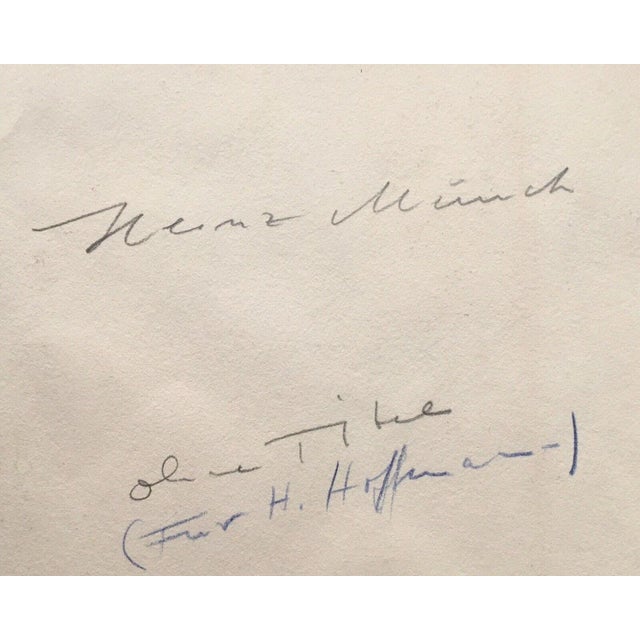 Heinz Münch
ohne Titel
(Für H. Hoffmann)